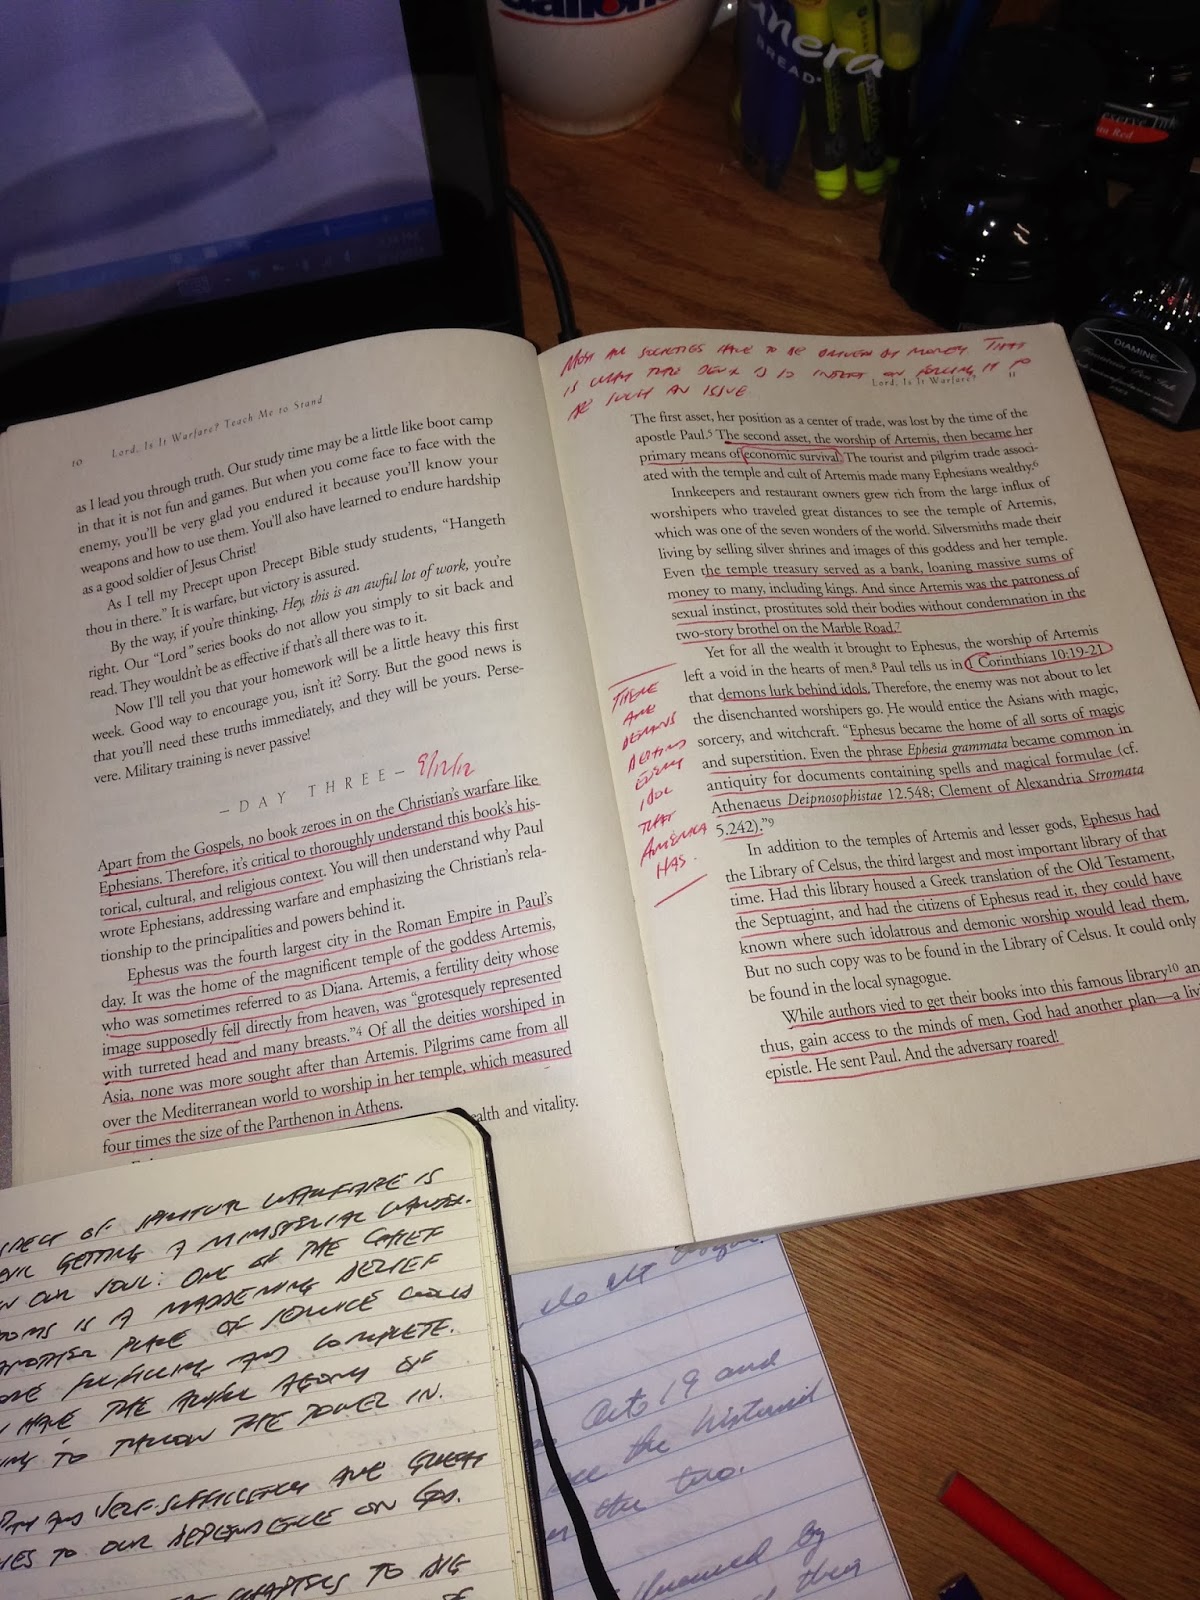 BREAD
Red
DIAMINE
10
Lord, Is It Warfare? Teach Me to Stand
as I lead you through truth. Our study time may be a little like boot camp
in that it is not fun and games. But when you come face to face with the
enemy, you'll be very glad you endured it because you'll know your
weapons and how to use them. You'll also have learned to endure hardship
as a good soldier of Jesus Christ!
As I tell my Precept upon Precept Bible study students, “Hangeth
thou in there.” It is warfare, but victory is assured.
By the way, if you're thinking, Hey, this is an awful lot of work, you're
right. Our “Lord” series books do not allow you simply to sit back and
read. They wouldn't be as effective if that's all there was to it.
Now I'll tell you that your homework will be a little heavy this first
week. Good way to encourage you, isn't it? Sorry. But the good news is
that you'll need these truths immediately, and they will be yours. Perse-
vere. Military training is never passive!
—DAY THREE— 9/12/12
Apart from the Gospels, no book zeroes in on the Christian's warfare like
Ephesians. Therefore, it's critical to thoroughly understand this book's his-
torical, cultural, and religious context. You will then understand why Paul
wrote Ephesians, addressing warfare and emphasizing the Christian's rela-
tionship to the principalities and powers behind it.
Ephesus was the fourth largest city in the Roman Empire in Paul's
day. It was the home of the magnificent temple of the goddess Artemis,
who was sometimes referred to as Diana. Artemis, a fertility deity whose
image supposedly fell directly from heaven, was “grotesquely represented
with turreted head and many breasts.”4 Of all the deities worshiped in
Asia, none was more sought after than Artemis. Pilgrims came from all
over the Mediterranean world to worship in her temple, which measured
four times the size of the Parthenon in Athens.
and vitality.
ALL SOCIETIES HAVE TO BE DRIVEN BY MONEY. THAT
IS WHAT THE
BE SUCH AN ISSUE
Lord, Is It Warfare? 11
The first asset, her position as a center of trade, was lost by the time of the
apostle Paul.5 The second asset, the worship of Artemis, then became her
primary means of economic survival. The tourist and pilgrim trade associ-
ated with the temple and cult of Artemis made many Ephesians wealthy.6
Innkeepers and restaurant owners grew rich from the large influx of
worshipers who traveled great distances to see the temple of Artemis,
which was one of the seven wonders of the world. Silversmiths made their
living by selling silver shrines and images of this goddess and her temple.
Even the temple treasury served as a bank, loaning massive sums of
money to many, including kings. And since Artemis was the patroness of
sexual instinct, prostitutes sold their bodies without condemnation in the
two-story brothel on the Marble Road.7
Yet for all the wealth it brought to Ephesus, the worship of Artemis
left a void in the hearts of men.8 Paul tells us in 1 Corinthians 10:19-21
that demons lurk behind idols. Therefore, the enemy was not about to let
the disenchanted worshipers go. He would entice the Asians with magic,
sorcery, and witchcraft. “Ephesus became the home of all sorts of magic
and superstition. Even the phrase Ephesia grammata became common in
antiquity for documents containing spells and magical formulae (cf.
Athenaeus Deipnosophistae 12.548; Clement of Alexandria Stromata
5.242).”9
In addition to the temples of Artemis and lesser gods, Ephesus had
the Library of Celsus, the third largest and most important library of that
time. Had this library housed a Greek translation of the Old Testament,
the Septuagint, and had the citizens of Ephesus read it, they could have
known where such idolatrous and demonic worship would lead them.
But no such copy was to be found in the Library of Celsus. It could only
be found in the local synagogue.
While authors vied to get their books into this famous library10
thus, gain access to the minds of men, God had another plan—a
epistle. He sent Paul. And the adversary roared!
THERE
ARE
DEMONS
BEHIND
EVERY
IDOL
THAT
AMERICA
HAS.
OF SPIRITUAL WARFARE IS
GETTING A MINISTERIAL
OUR SOUL: ONE OF THE CHIEF
IS A MADDENING BELIEF
ANOTHER PLACE OF SERVICE COULD
FULFILLING AND COMPLETE.
HAVE THE AWFUL AGONY OF
TO THE POWER IN.
AND SELF-SUFFICIENCY ARE GREAT
TO OUR DEPENDENCE ON GOD.
CHAPTERS TO
OF
Acts 19 and
the historical
the two.
by
their